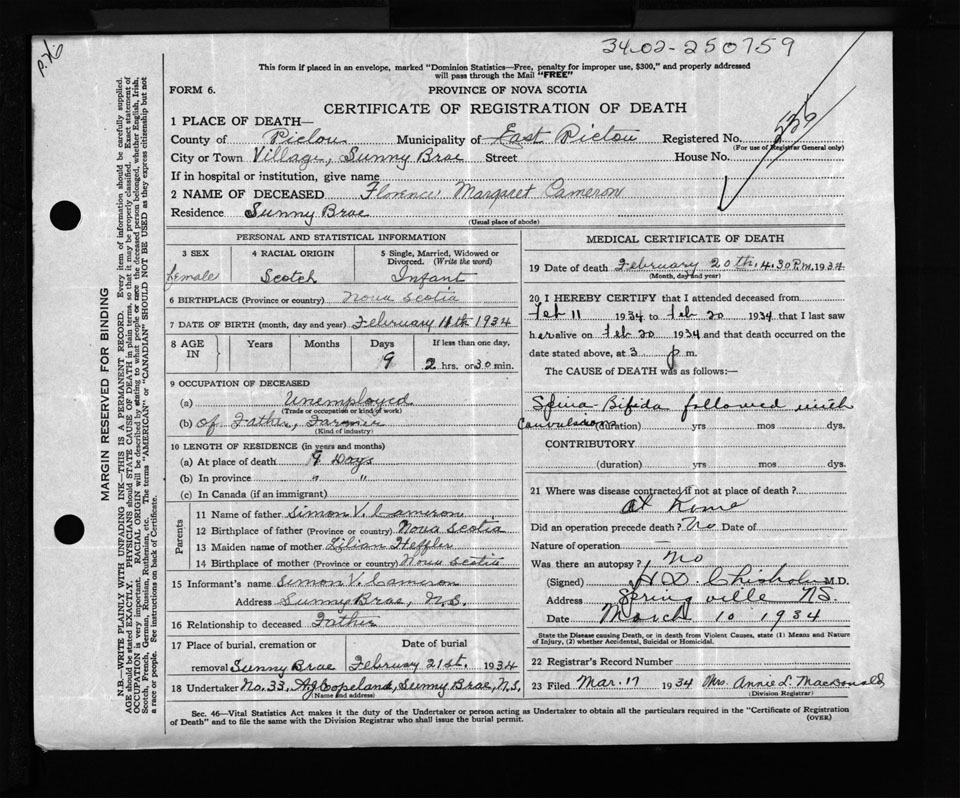 34-02-250759
This form if placed in an envelope, marked "Dominion Statistics—Free, penalty for improper use, $300," and properly addressed
will pass through the Mail "FREE"
FORM 6.
PROVINCE OF NOVA SCOTIA
CERTIFICATE OF REGISTRATION OF DEATH
1 PLACE OF DEATH—
County of Pictou Municipality of East Pictou Registered No. 236
(For use of Registrar General only)
City or Town Village, Sunny Brae Street House No.
If in hospital or institution, give name
2 NAME OF DECEASED Florence Margaret Cameron
Residence Sunny Brae
(Usual place of abode)
PERSONAL AND STATISTICAL INFORMATION
3 SEX 4 RACIAL ORIGIN 5 Single, Married, Widowed or
Divorced. (Write the word)
female Scotch Infant
6 BIRTHPLACE (Province or country) Nova Scotia
7 DATE OF BIRTH (month, day and year) February 11th 1934
8 AGE IN Years Months Days If less than one day,
9 2 hrs. or 30 min.
9 OCCUPATION OF DECEASED
(a) Unemployed
(Trade or occupation or kind of work)
(b) of Father, Farmer
(Kind of industry)
10 LENGTH OF RESIDENCE (in years and months)
(a) At place of death 9 Days
(b) In province " "
(c) In Canada (if an immigrant)
Parents
11 Name of father Simon V. Cameron
12 Birthplace of father (Province or country) Nova Scotia
13 Maiden name of mother Lilian Heffler
14 Birthplace of mother (Province or country) Nova Scotia
15 Informant's name Simon V. Cameron
Address Sunny Brae, N.S.
16 Relationship to deceased Father
17 Place of burial, cremation or Date of burial
removal Sunny Brae February 21st. 1934
18 Undertaker No. 33, A.J. Copeland, Sunny Brae, N.S.
(Name and address)
MEDICAL CERTIFICATE OF DEATH
19 Date of death February 20th, 4.30 P.M. 1934
(Month, day and year)
20 I HEREBY CERTIFY that I attended deceased from
Feb 11 1934 to Feb 20 1934 that I last saw
her alive on Feb 20 1934 and that death occurred on the
date stated above, at 3 p m.
The CAUSE of DEATH was as follows:—
Spina-Bifida followed with
Convulsions (duration) yrs mos dys.
CONTRIBUTORY
(duration) yrs mos dys.
21 Where was disease contracted if not at place of death?
At Home
Did an operation precede death? No Date of
Nature of operation
Was there an autopsy? No
(Signed) H.D. Chisholm M.D.
Address Springville N.S.
Date March 10 1934
State the Disease causing Death, or in death from Violent Causes, state (1) Means and Nature
of Injury, (2) whether Accidental, Suicidal or Homicidal.
22 Registrar's Record Number
23 Filed Mar. 17 1934 Mrs. Annie L. MacDonald
(Division Registrar)
Sec. 46—Vital Statistics Act makes it the duty of the Undertaker or person acting as Undertaker to obtain all the particulars required in the "Certificate of Registration
of Death" and to file the same with the Division Registrar who shall issue the burial permit.
(OVER)
MARGIN RESERVED FOR BINDING
N.B.—WRITE PLAINLY WITH UNFADING INK—THIS IS A PERMANENT RECORD. Every item of information should be carefully supplied.
AGE should be stated EXACTLY. PHYSICIANS should STATE CAUSE OF DEATH in plain terms, so that it may be properly classified. Exact statement of
OCCUPATION is very important. RACIAL ORIGIN will be described by stating to what people or race the deceased person belonged, whether English, Irish,
Scotch, French, German, Russian, Ruthenian, etc. The terms "AMERICAN" or "CANADIAN" SHOULD NOT BE USED as they express citizenship but not
a race or people. See instructions on back of Certificate.